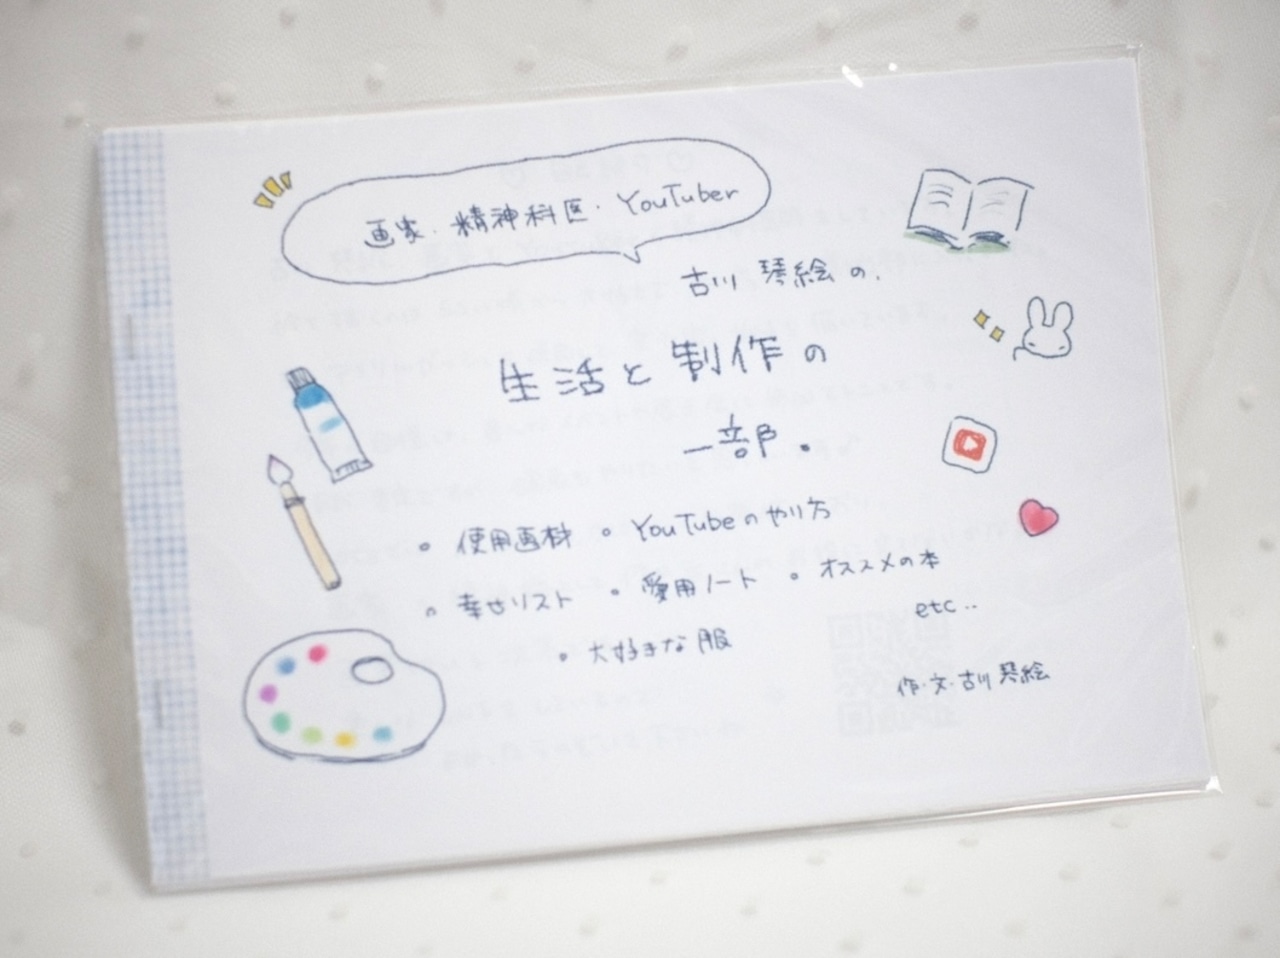 画家・精神科医・YouTuber
古川 琴絵 の、
生活と制作の
一部。
。使用画材 。YouTubeのやり方
。幸せリスト 。愛用ノート 。オススメの本
etc..
。大好きな服
作・文・古川琴絵